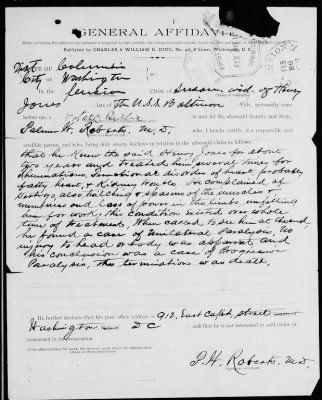 GENERAL AFFIDAVIT
Published by CHARLES & WILLIAM H. KING, Washington, D. C.
Dist of Columbia
City of Washington
In the pension Susan, wid. of Henry
Jones late of the U.S.S. Baltimore
personally came
before me, a Notary Public in and for the aforesaid County and State
Palmer H. Roberts, M.D. who I hereby certify, is a respectable and
credible person, and who, being duly sworn, declares in relation to the aforesaid case
that he knew the said Henry Jones for about
two years and treated him several times for
Rheumatism, functional disorder of heart, probably
fatty heart, & Kidney trouble. He complained of
Vertigo, also twitching & spasms of the muscles &
numbness and loss of power in the limbs, unfitting
him for work; this condition existed over whole
time of treatment. When called to see him at the end,
he found a case of Unilateral Paralysis, no
injury to head or body was apparent, and
his conclusion was a case of Progressive
Paralysis, the termination was death.
He further declares that his post office address is 912 East Capitol street
Washington D C and that he is not interested in said claim or
concerned in its prosecution.
P. H. Roberts, M.D.